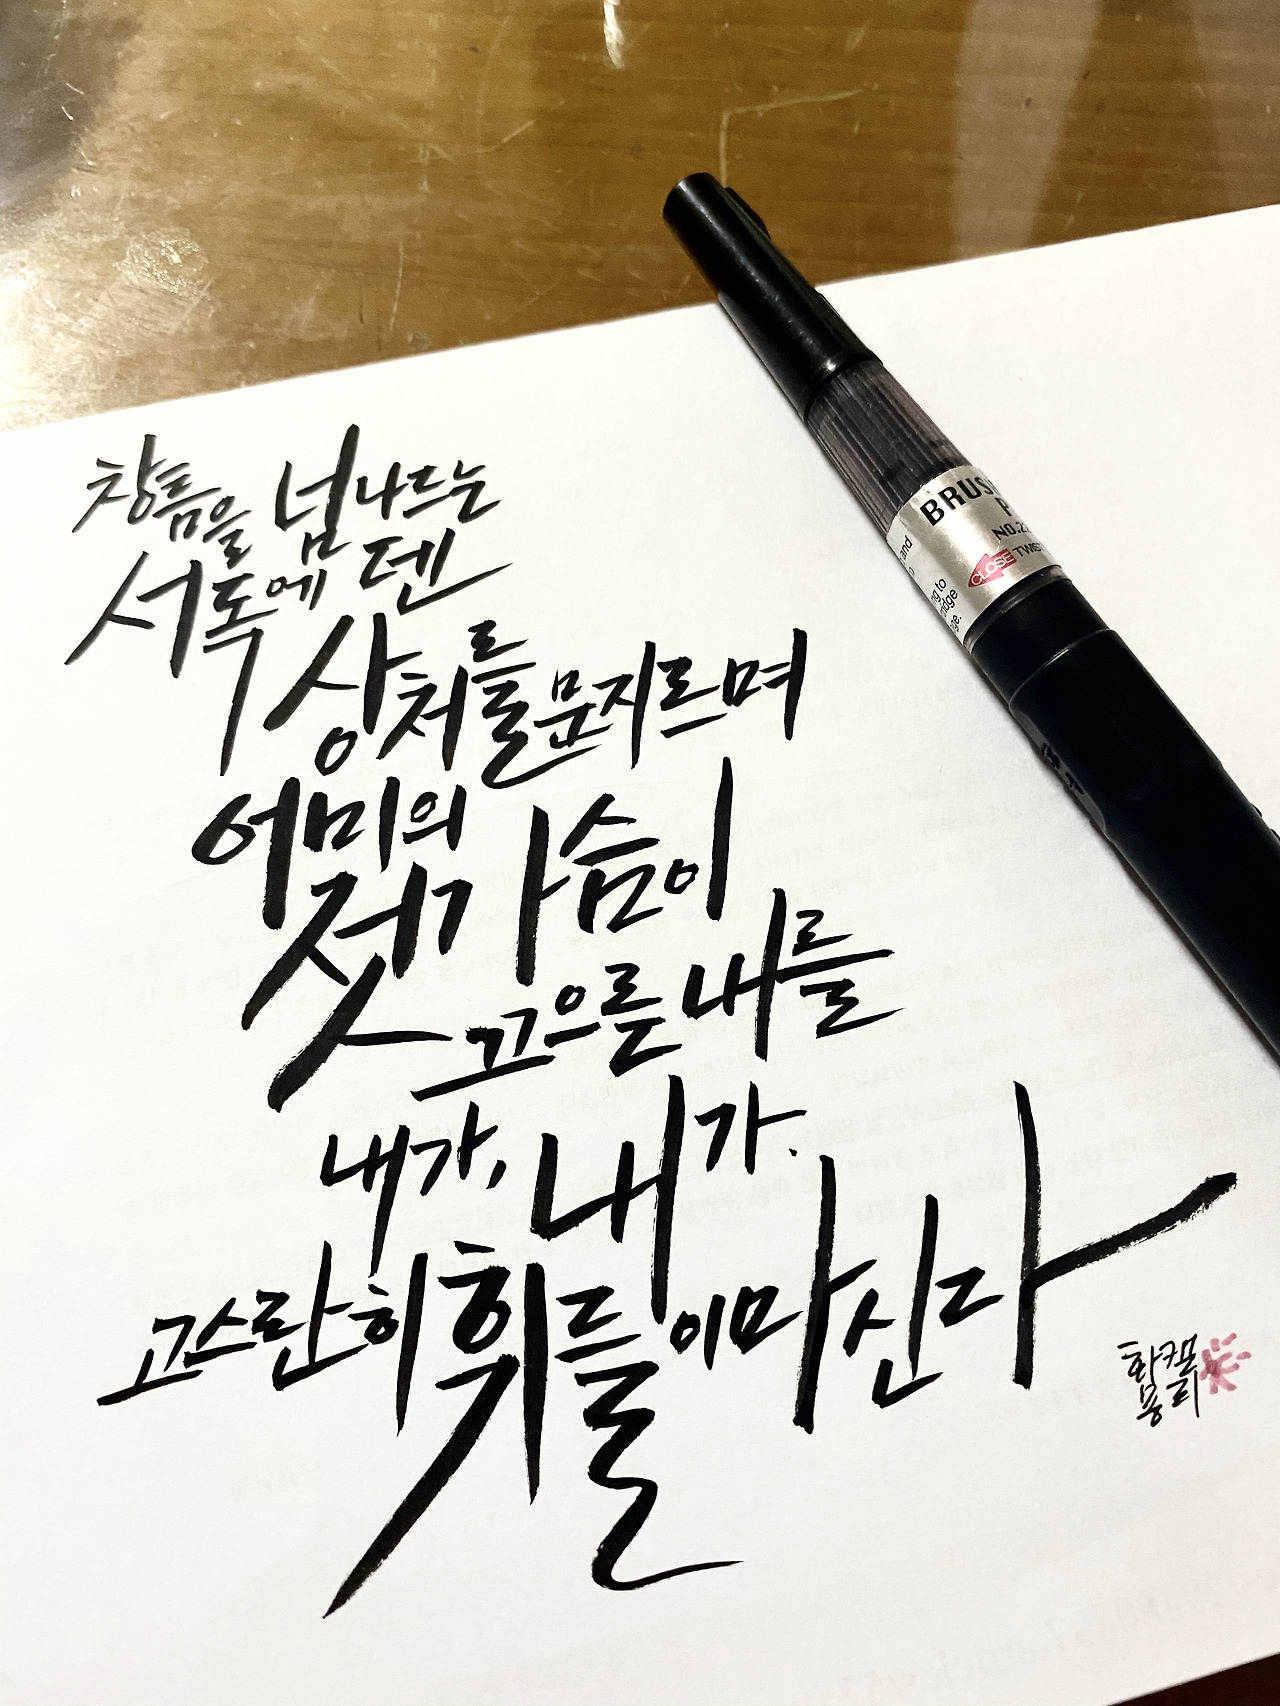 창틈을 넘나드는
서독에 덴
상처를 문지르며
어미의
젖가슴이
끄으름 내를
내가, 내가.
고스란히 휘들이마신다
BRUS
NO.2
CLOSE TWIS
and
ng to
ridge
ge.